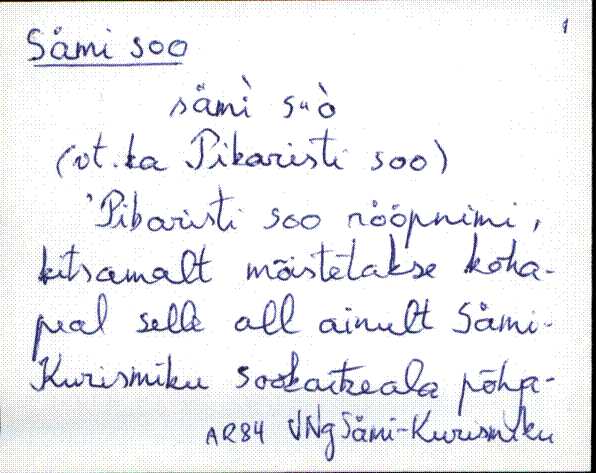 1
Sämi soo
sämì suò
(vt. ka Pikaristi soo)
'Pikaristi soo rööpnimi,
kitsamalt mõistetakse koha-
peal selle all ainult Sämi-
Kurismiku sookaitseala põhja-
AR84 VNg Sämi-Kurismiku